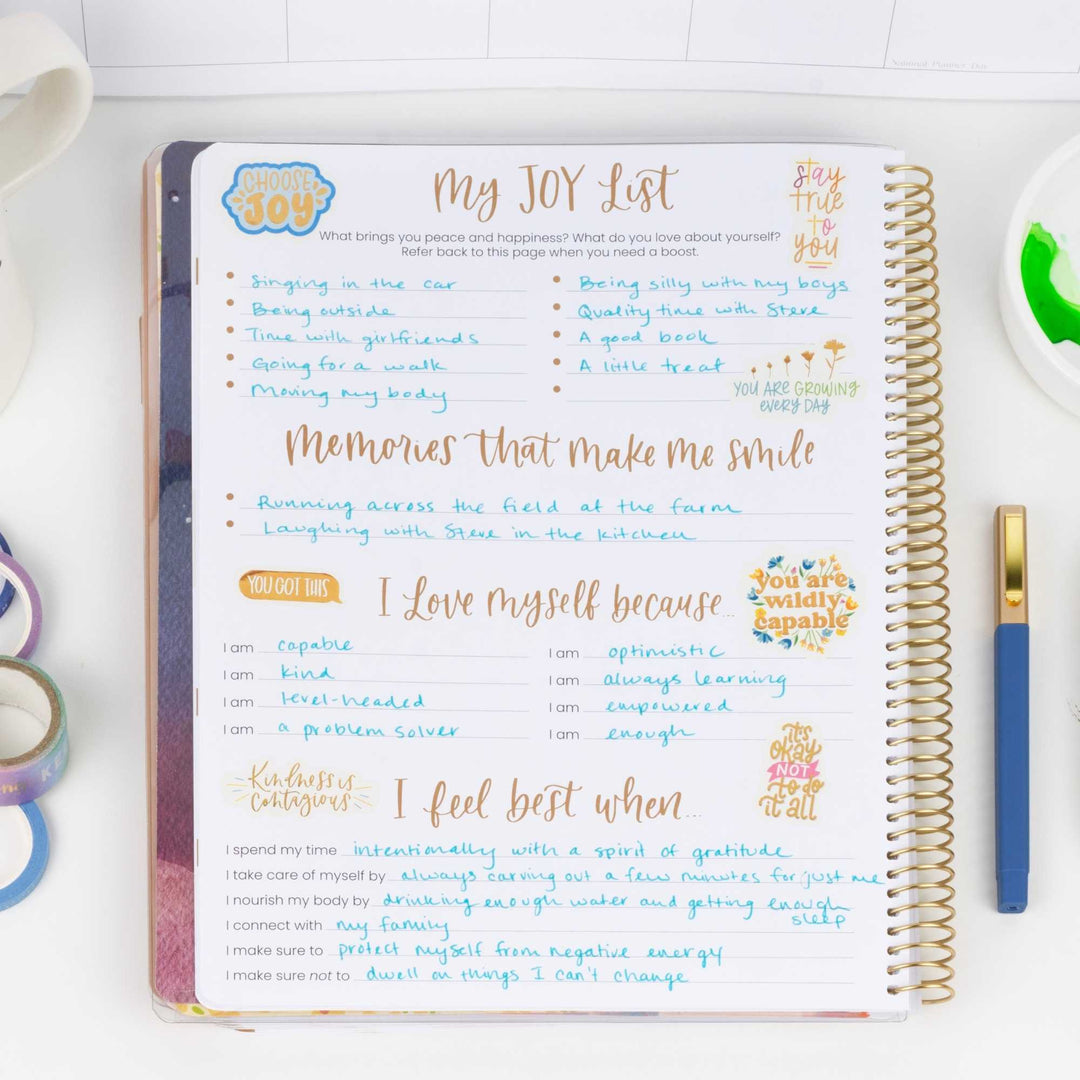 National Planner Day
CHOOSE
JOY
My JOY List
stay
true
to
you
What brings you peace and happiness? What do you love about yourself?
Refer back to this page when you need a boost.
Singing in the car
Being outside
Time with girlfriends
Going for a walk
Moving my body
Being silly with my boys
Quality time with Steve
A good book
A little treat
YOU ARE GROWING
EVERY DAY
Memories that make me smile
Running across the field at the farm
Laughing with Steve in the kitchen
YOU GOT THIS
I Love myself because...
you are
wildly
capable
I am capable
I am kind
I am level-headed
I am a problem solver
I am optimistic
I am always learning
I am empowered
I am enough
Kindness is
contagious
I feel best when...
it's
okay
NOT
to do
it all
I spend my time intentionally with a spirit of gratitude
I take care of myself by always carving out a few minutes for just me
I nourish my body by drinking enough water and getting enough
sleep
I connect with my family
I make sure to protect myself from negative energy
I make sure not to dwell on things I can't change